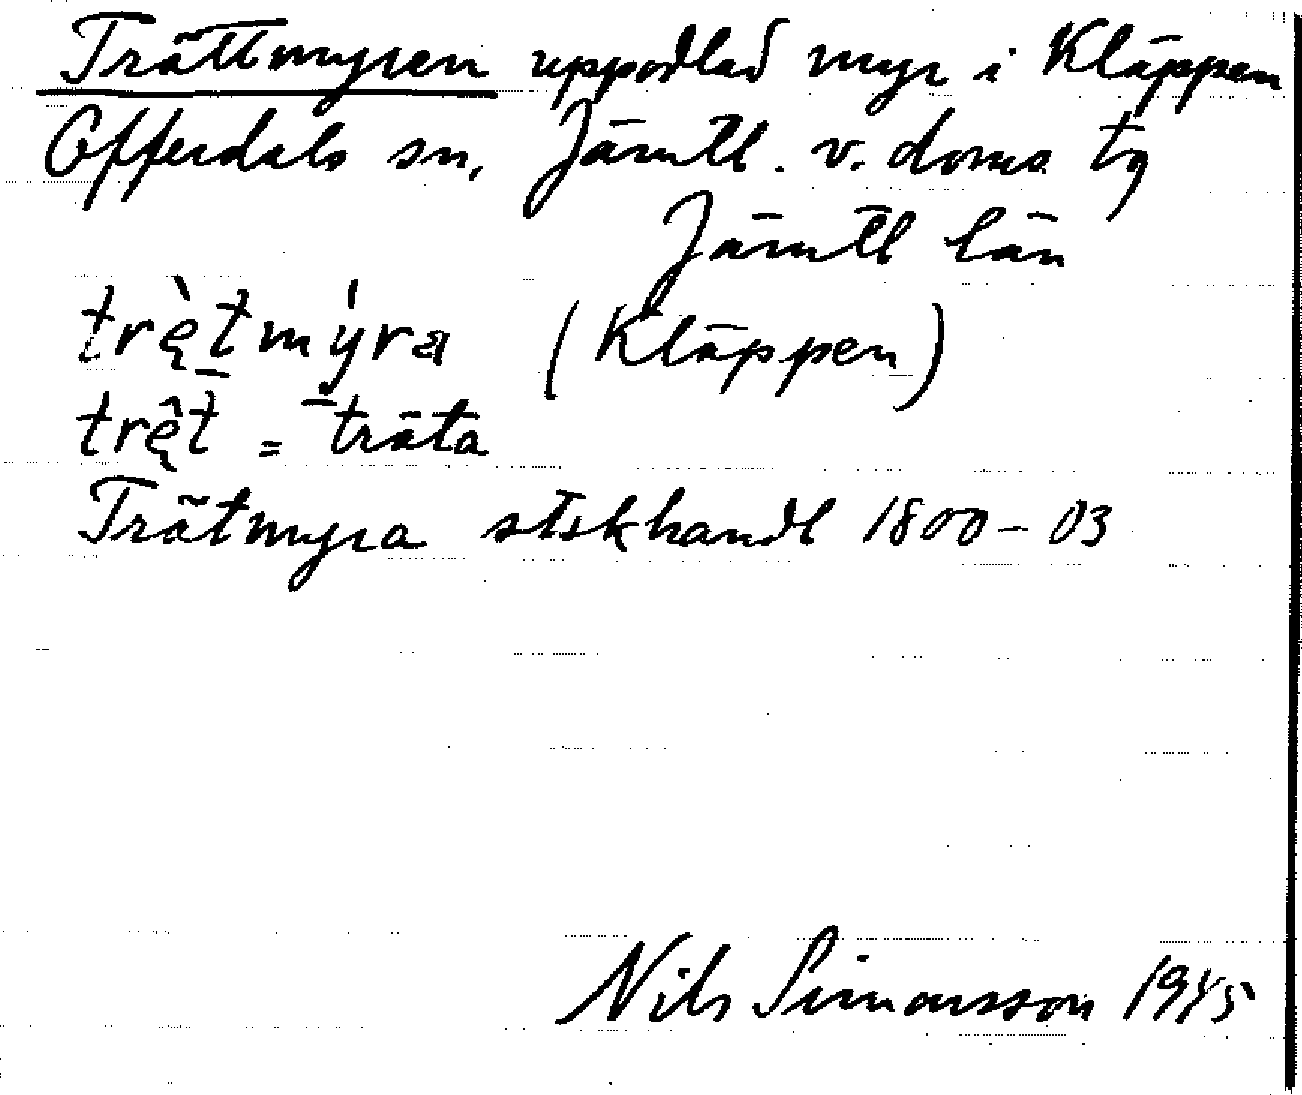 Trättmyren uppodlad myr i Kläppen
Offerdals sn, Jämtl. v. doms tg
Jämtl län
trę̀tmýra (Kläppen)
trę̂t = träta
Trätmyra stskhandl 1800-03
Nils Simonsson 1945